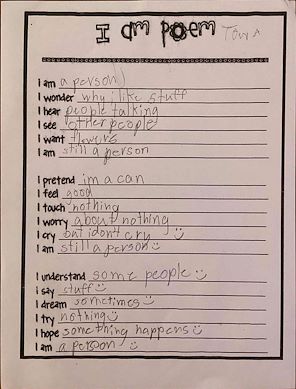 I am poem
I am a person
I wonder why i like stuff
I hear people talking
I see other people
I want flowers
I am still a person
I pretend im a can
I feel good
I touch nothing
I worry about nothing
I cry but i dont cry
I am still a person
I understand some people
i say stuff
I dream sometimes
I try nothing
I hope something happens
I am a person